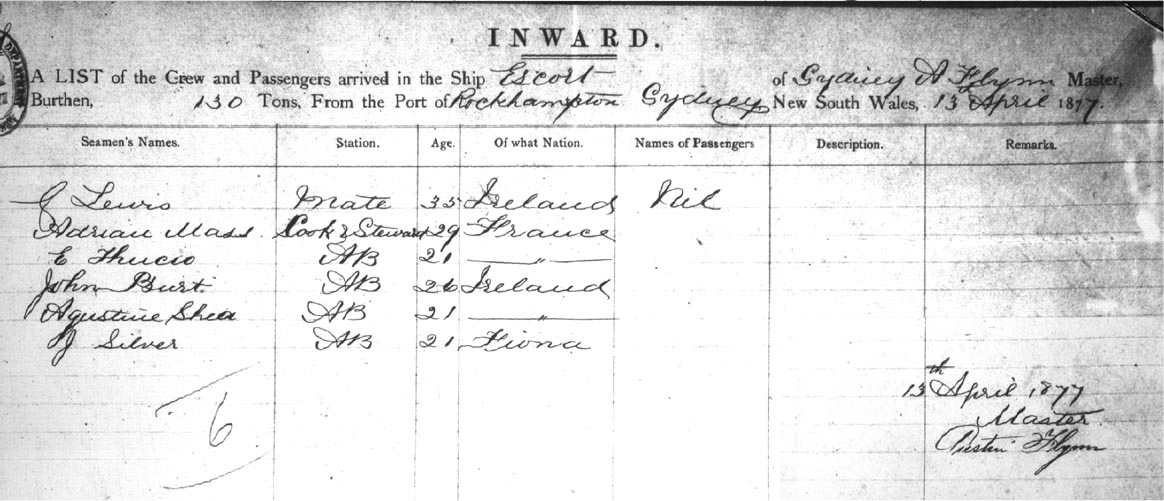 INWARD.
A LIST of the Crew and Passengers arrived in the Ship Escort of Sydney A Flynn Master,
Burthen, 130 Tons, From the Port of Rockhampton Sydney New South Wales, 13 April 1877.
Seamen's Names. Station. Age. Of what Nation. Names of Passengers Description. Remarks.
J Lewis Mate 35 Ireland Nil
Adrian Mass Cook & Steward 29 France
E AB 21 — " —
John Burt AB 26 Ireland
Agustine Shea AB 21 — " —
J Silver AB 21 Fiona
6
13th April 1877
Master
Flynn